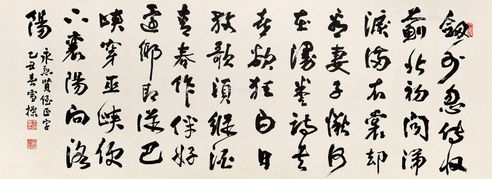 劍外忽傳收
薊北初聞涕
淚滿衣裳却
看妻子愁何
在漫卷詩書
喜欲狂白日
放歌須縱酒
青春作伴好
還鄉即從巴
峽穿巫峽便
下襄陽向洛
陽
永 賢侄正字
乙丑春雪樵